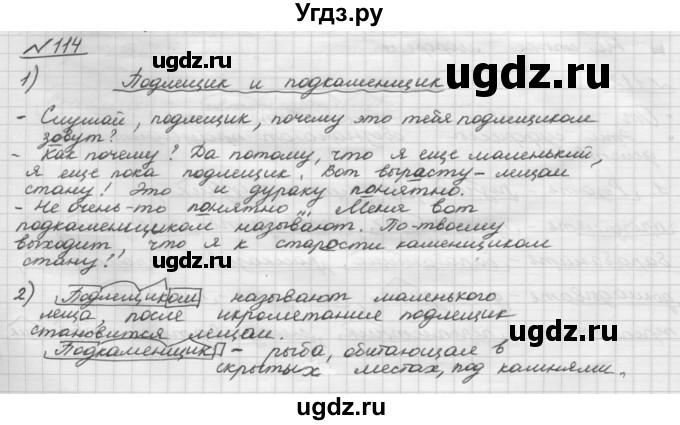 Угдз.ру
№ 114
1) Подлещик и подкаменщик
- Слушай, подлещик, почему это тебя подлещиком
зовут?
- Как почему? Да потому, что я еще маленький,
я еще пока подлещик. Вот вырасту - лещом
стану! Это и дураку понятно.
- Не очень-то понятно... Меня вот
подкаменщиком называют. По-твоему
выходит, что я к старости каменщиком
стану?
2) Подлещиком называют маленького
леща, после икрометание подлещик
становится лещом.
Подкаменщик - рыба, обитающая в
скрытых местах, под камнями.
uгdz.ru
uгdz.ru
uгdz.ru
uгdz.ru
uгdz.ru
uгdz.ru
uгdz.ru